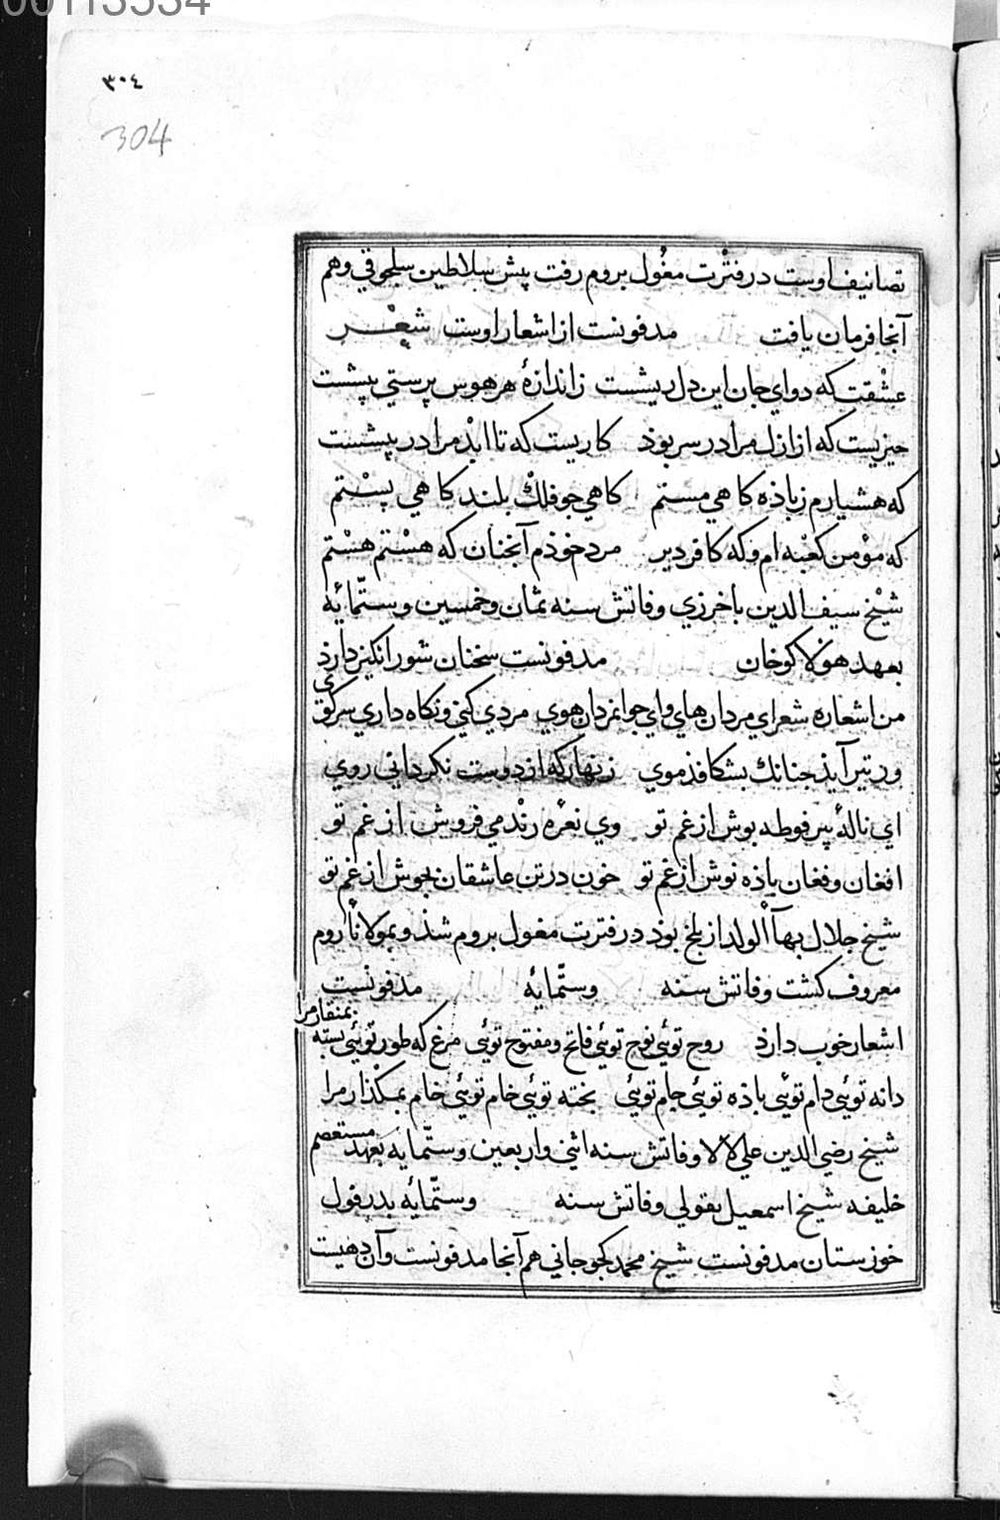 00113534
٣٠٤
304
تصانیف اوست در فترت مغُول بروم رفت پیش سلاطین سلجوقي وهم
آنجا فرمان یافت مدفونست از اشعار اوست شعْر
عشْقت که دواي جان این دل ریشست زاندازۀ هر هوس پرستي پیشست
چیزیست که از ازل مرا در سر بوذ کاریست که تا ابذ مرا در پیشست
که هشیارم زباذه کاهي مستم کاهي جو فلك بلند کاهي پستم
که مؤمن کعْبه ام و که کافر دیر مرد خوذم آنجنان که هسْتم هسْتم
شیْخ سیف الدین باخرزي وفاتش سنه ثمان وخمسین وستّمائه
بعهد هولاکوخان مدفونست سخنان شور انکیز دارذ
من اشعاره شعر اي مردان هاي واي جوانمردان هوي مردي کني ونکاه داري سر کوي
ور تیر آیذ جنانك بشکافذ موي زنهار که از دوست نکرداني روي
اي نالۀ پیر فوطه بوش از غم تو وي نعْره رنْد مي فروش از غم تو
افغان و فغان باذه نوش از غم تو خون در تن عاشقان بجوش از غم تو
شیخ جلال بهآ الولد از بلخ بوذ در فترت مغول بروم شذ و بمولانا روم
معروف کشت وفاتش سنه وستّمایۀ مدفونست
اشعار خوب دارذ روح توئي نوح توئي فاتح ومفتوح توئي مرغ که طور توئي بسته بمنقار مرا
دانه توئي دام توئي باذه توئي جام توئي بخته توئي خام توئي خام بمکذار مرا
شیخ رضي الدین علي لالا وفاتش سنه اثني واربعین وستّمایه بعهد مستعصم
خلیفه شیخ اسمعیل بقولي وفاتش سنه وستّمائه بدرفول
خوزستان مدفونست شیخ محمد کجوجاني هم آنجا مدفونست وآن دهیست